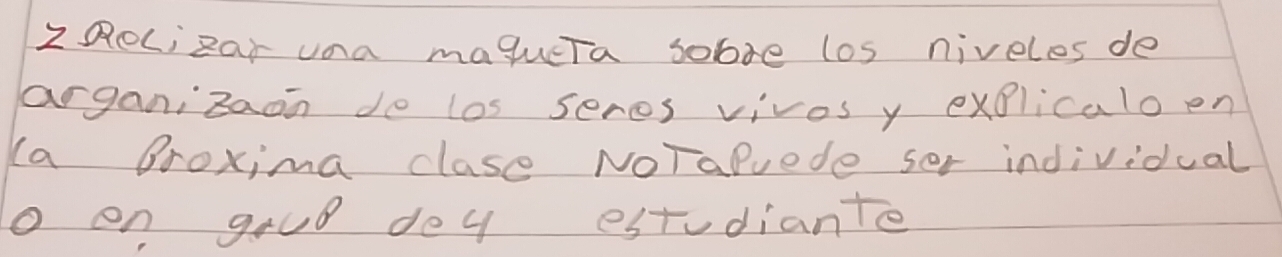 2 Relizar una maqueta sobre los niveles de
arganizaón de los seres vivos y explicalo en
la Proxima clase NOTA Puede ser individual
o en grup de 4 estudiante